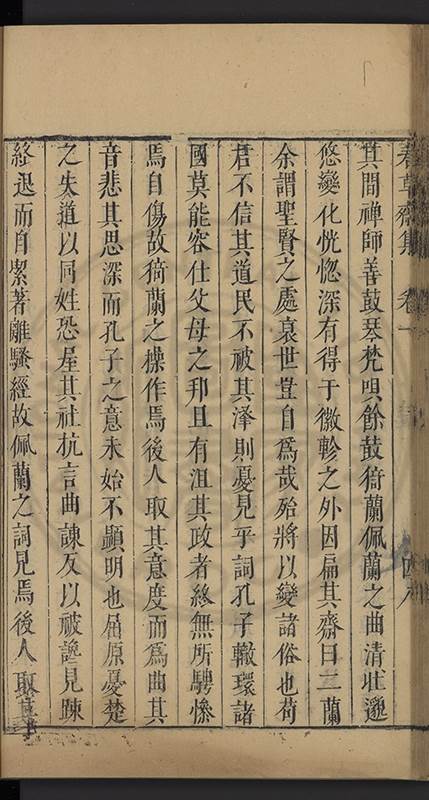 春草齋集 卷一
其間禪師善鼓琴梵唄餘鼓猗蘭佩蘭之曲清壯遜
悠變化恍惚深有得于徽軫之外因扁其齋曰二蘭
余謂聖賢之處衰世豈自爲哉殆將以變諸俗也苟
君不信其道民不被其泽則憂見乎詞孔子轍環諸
國莫能容仕父母之邦且有沮其政者終無所騁愴
焉自傷故猗蘭之操作焉後人取其意度而爲曲其
音悲其思深而孔子之意未始不顯明也屈原憂楚
之失道以同姓恐屋其社抗言曲諫反以被讒見踈
終退而自潔著離騷經故佩蘭之詞見焉後人取其